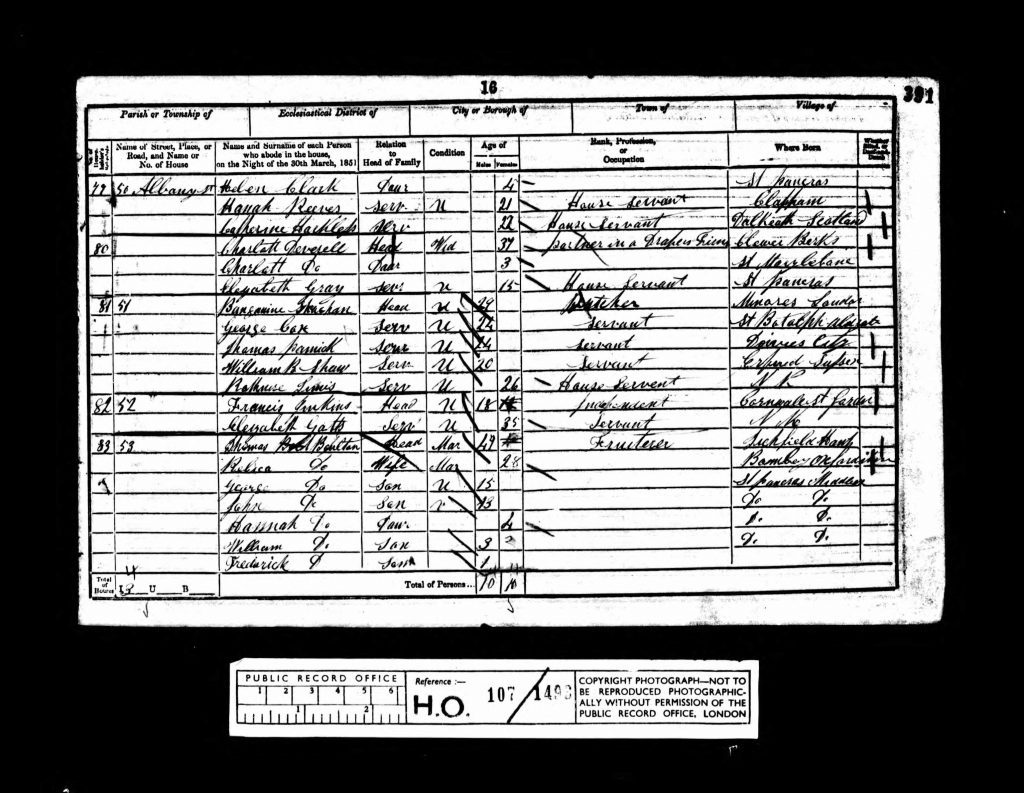 16
391
Parish or Township of Ecclesiastical District of City or Borough of Town of Village of
Name of Street, Place, or Road, and Name or No. of House
Name and Surname of each Person who abode in the house, on the Night of the 30th March, 1851
Relation to Head of Family
Condition
Age of
Males Females
Rank, Profession, or Occupation
Where Born
79 50 Albany St Helen Clark Daur 4 St Pancras
Hanah Reeves Serv U 21 House Servant Clapham
Catherine Serv 22 House Servant Dalkeith Scotland
80 Charlott Deverell Head Wid 37 partner in a Drapers Firm Clewer Berks
Charlott Do Daur 3 St Marrlebane
Elizabeth Gray Serv U 15 House Servant St Pancras
81 51 Head U 29 Butcher Minores London
George Cox Serv U 22 Servant St Botolph
Thomas Serv U 24 Servant
William R Shaw Serv U 20 Servant
Serv U 26 House Servent N K
82 52 Francis Head U 18 Independent
Serv U 35 Servant N K
83 53 Thomas Boulton Head Mar 49 Fruiterer
Do Wife Mar 28
George Do Son U 15 St Pancras
John Do Son 13 Do Do
Hannah Do Daur 4 D. D.
William D. Son 3 D. D.
Frederick D Son 1
Total of Houses 4 I U B
Total of Persons... 10
PUBLIC RECORD OFFICE
1 2 3 4 5 6
1 2
Reference :—
H.O. 107/1493
COPYRIGHT PHOTOGRAPH—NOT TO
BE REPRODUCED PHOTOGRAPHIC-
ALLY WITHOUT PERMISSION OF THE
PUBLIC RECORD OFFICE, LONDON